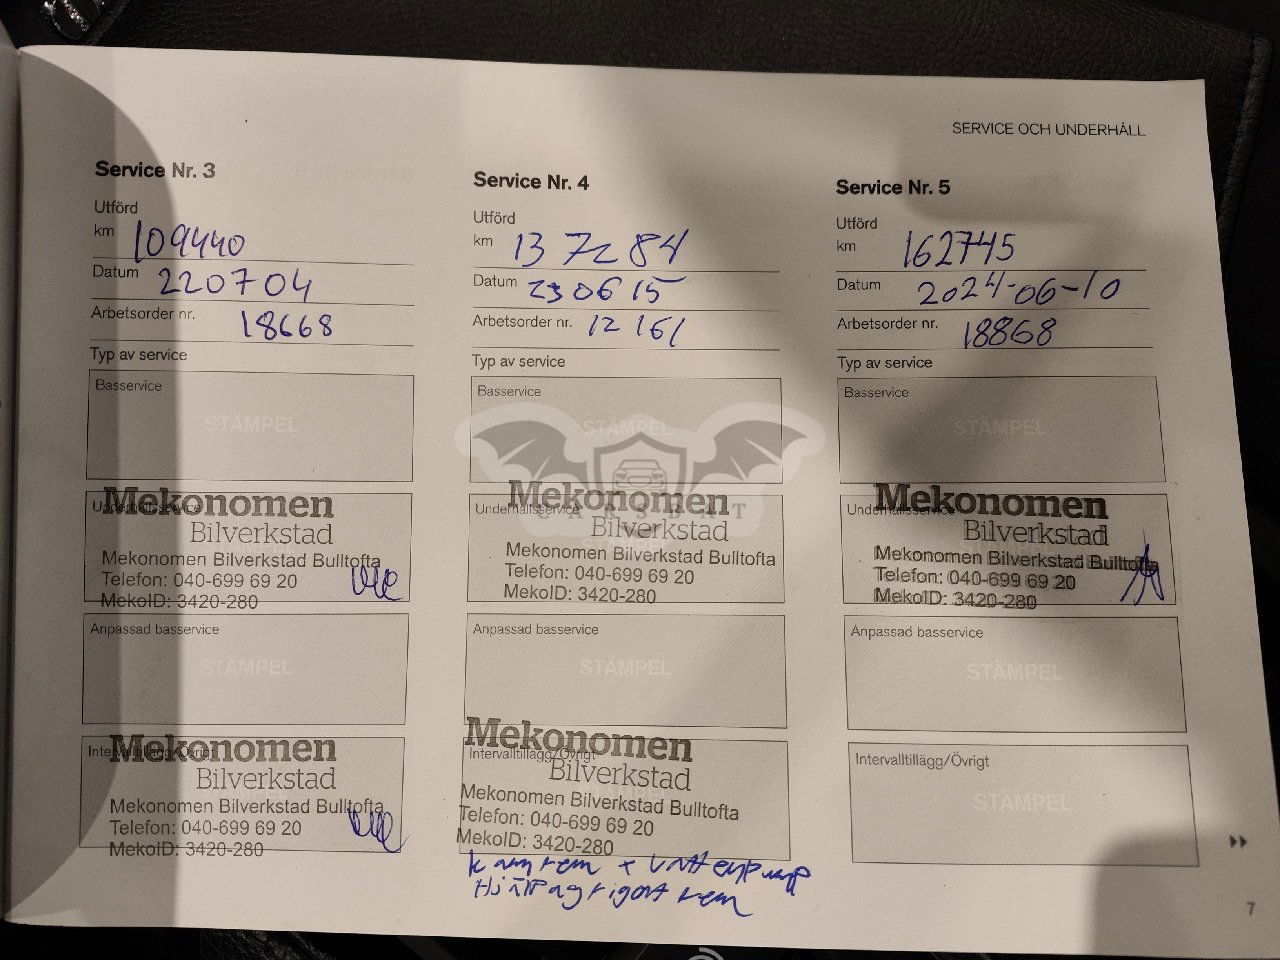 SERVICE OCH UNDERHÅLL
Service Nr. 3
Utförd
km 109440
Datum 220704
Arbetsorder nr. 18668
Typ av service
Basservice
STÄMPEL
Underhållsservice
Mekonomen
Bilverkstad
Mekonomen Bilverkstad Bulltofta
Telefon: 040-699 69 20
MekoID: 3420-280
Anpassad basservice
STÄMPEL
Intervalltillägg/Övrigt
Mekonomen
Bilverkstad
Mekonomen Bilverkstad Bulltofta
Telefon: 040-699 69 20
MekoID: 3420-280
Service Nr. 4
Utförd
km 137284
Datum 230615
Arbetsorder nr. 12161
Typ av service
Basservice
STÄMPEL
CARSBAT
Underhållsservice
Mekonomen
Bilverkstad
Mekonomen Bilverkstad Bulltofta
Telefon: 040-699 69 20
MekoID: 3420-280
Anpassad basservice
STÄMPEL
Intervalltillägg/Övrigt
Mekonomen
Bilverkstad
Mekonomen Bilverkstad Bulltofta
Telefon: 040-699 69 20
MekoID: 3420-280
kamrem + Vattenpump
Hjälpagrigat rem
Service Nr. 5
Utförd
km 162745
Datum 2024-06-10
Arbetsorder nr. 18868
Typ av service
Basservice
STÄMPEL
Underhållsservice
Mekonomen
Bilverkstad
Mekonomen Bilverkstad Bulltofta
Telefon: 040-699 69 20
MekoID: 3420-280
Anpassad basservice
STÄMPEL
Intervalltillägg/Övrigt
STÄMPEL
7